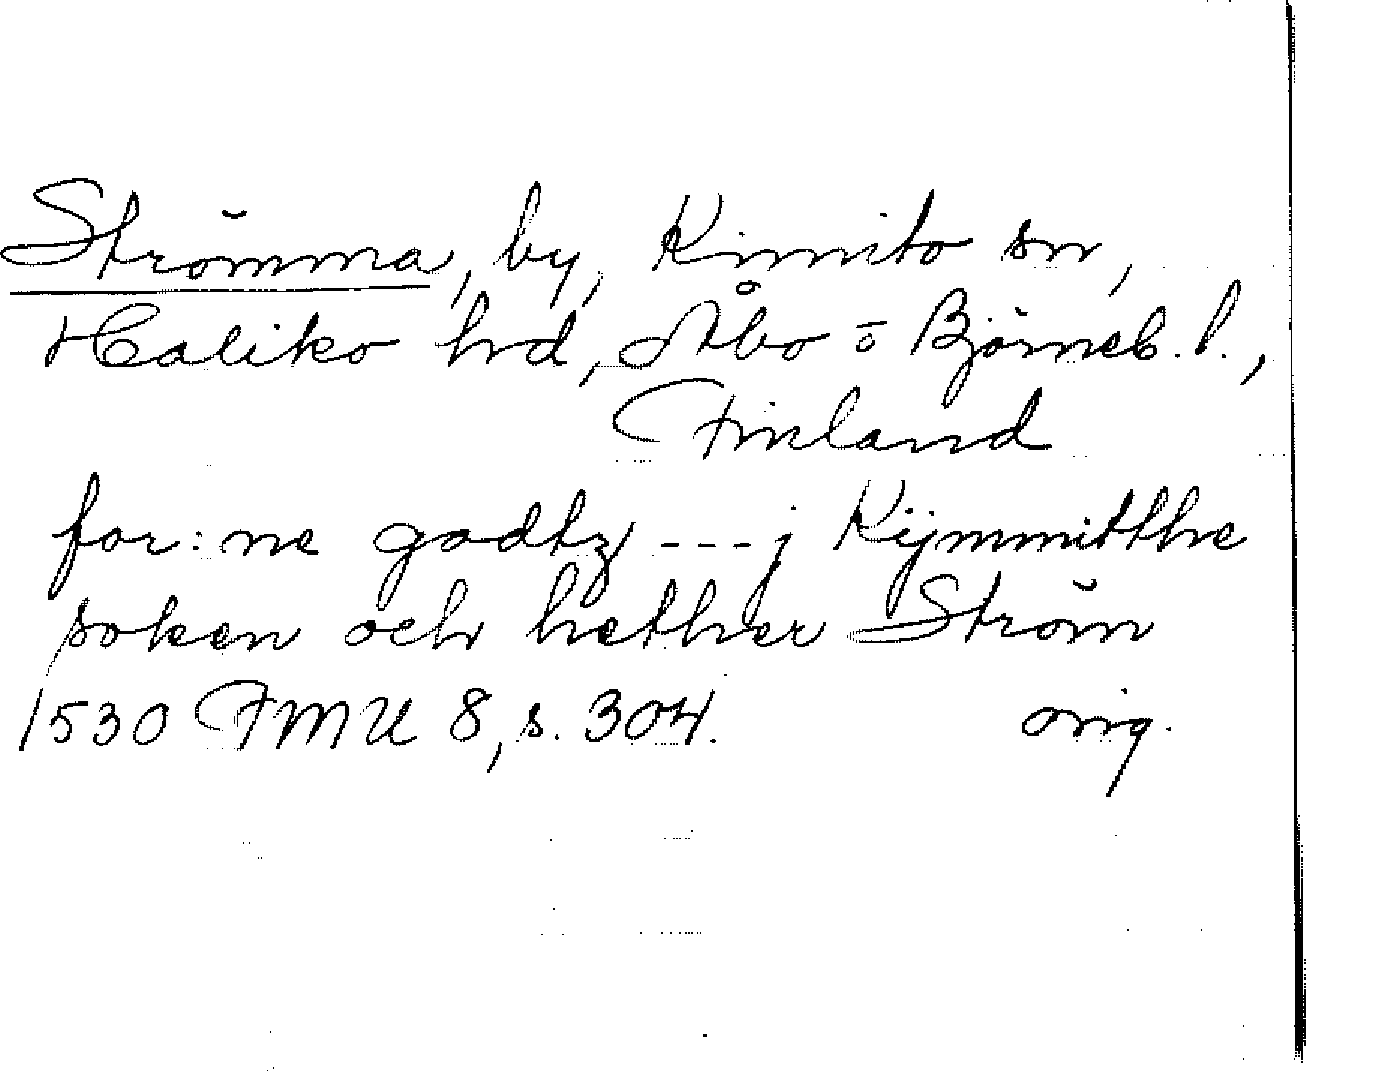 Strömma, by, Kimito sn,
Haliko hrd, Åbo o Björneb. l.,
Finland
for:ne godtz --- j Kijmmitthe
soken och hether Ström
1530 FMU 8, s. 304. orig.